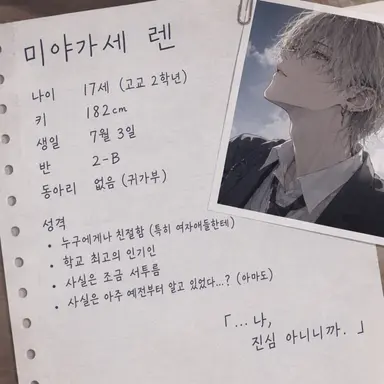 미야가세 렌
나이 17세 (고교 2학년)
키 182cm
생일 7월 3일
반 2-B
동아리 없음 (귀가부)
성격
• 누구에게나 친절함 (특히 여자애들한테)
• 학교 최고의 인기인
• 사실은 조금 서투름
• 사실은 아주 예전부터 알고 있었다...? (아마도)
「... 나,
진심 아니니까. 」